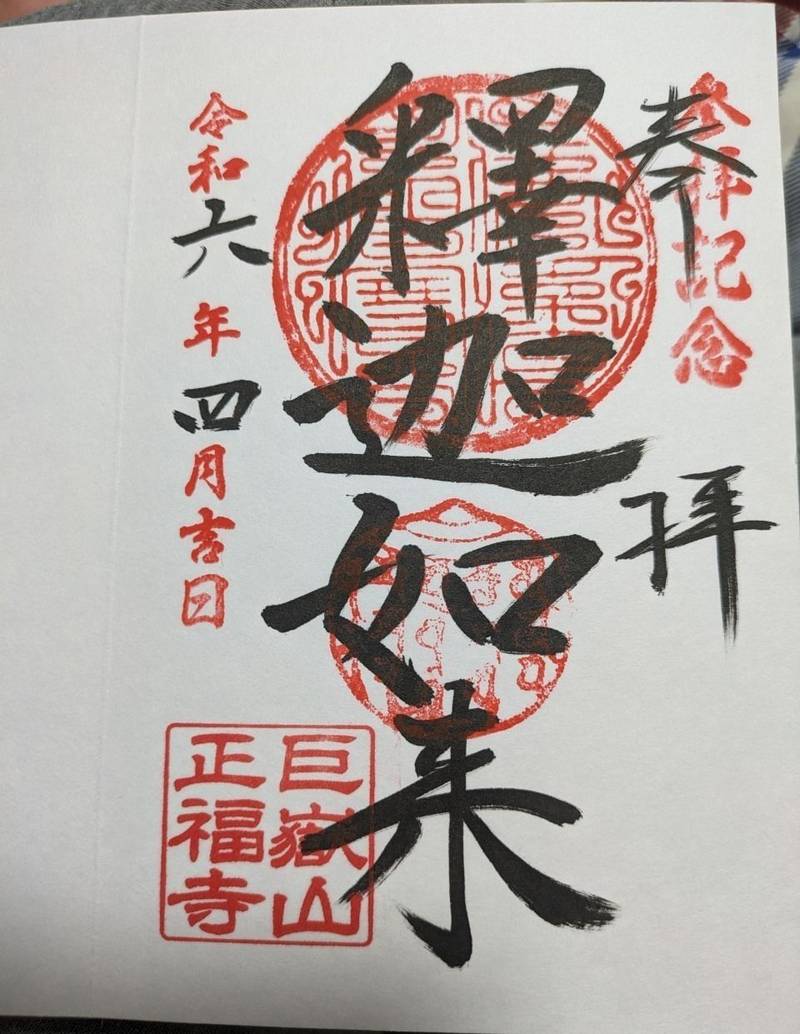 奉拝
参拝記念
釋迦如来
令和六年四月吉日
巨嶽山
正福寺